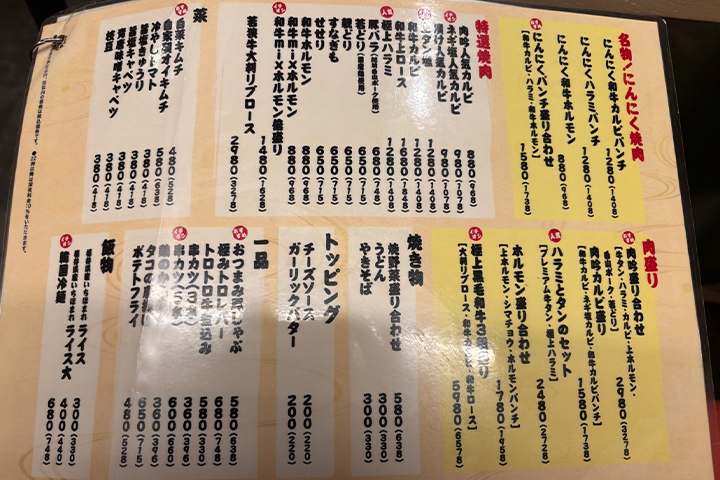 名物!にんにく焼肉
にんにく和牛カルビパンチ 1280(1408)
にんにくハラミパンチ 1280(1408)
にんにく和牛ホルモン 880(968)
にんにくパンチ盛り合わせ 1580(1738)
【和牛カルビ・ハラミ・和牛ホルモン】
特選焼肉
肉吟人気カルビ 880(968)
ネギ塩人気カルビ 980(1078)
漬け人気カルビ 980(1078)
上タン塩 1280(1408)
和牛カルビ 1280(1408)
和牛上ロース 1680(1848)
極上ハラミ 1280(1408)
豚バラ 680(748)
若どり 650(715)
親どり 650(715)
すなぎも 650(715)
せせり 650(715)
和牛ホルモン 880(968)
和牛mixホルモン 880(968)
和牛mixホルモン倍盛り 1480(1628)
若狭牛大判リブロース 2980(3278)
菜
白菜キムチ 480(528)
自家製オイキムチ 580(638)
冷やしトマト 380(418)
旨塩きゅうり 380(418)
旨塩キャベツ 380(418)
特製味噌キャベツ 380(418)
枝豆 380(418)
肉盛り
肉吟盛り合わせ 2980(3278)
【牛タン・ハラミ・カルビ・上ホルモン・
香山ポーク・若どり】
肉吟カルビ盛り 1580(1738)
【和牛カルビ・ネギ塩カルビ・和牛カルビパンチ】
ハラミとタンのセット 2480(2728)
【プレミアム牛タン・極上ハラミ】
ホルモン盛り合わせ 1780(1958)
【上ホルモン・シマチョウ・ホルモンパンチ】
極上黒毛和牛3種盛り 5980(6578)
【大判リブロース・和牛カルビ・和牛ロース】
焼き物
焼野菜盛り合わせ 580(638)
うどん 300(330)
やきそば 300(330)
トッピング
チーズソース 200(220)
ガーリックバター 200(220)
一品
おつまみ豆しゃぶ 580(638)
極みトロレバー 680(748)
トロトロ牛すじ煮込み 580(638)
串カツ(3本) 330(363)
串カツ(5本) 600(660)
鶏のから 360(396)
タコの唐揚げ 650(715)
ポテトフライ 480(528)
飯物
福井県産いちほまれ ライス 300(330)
福井県産いちほまれ ライス大 400(440)
韓国冷麺 680(748)